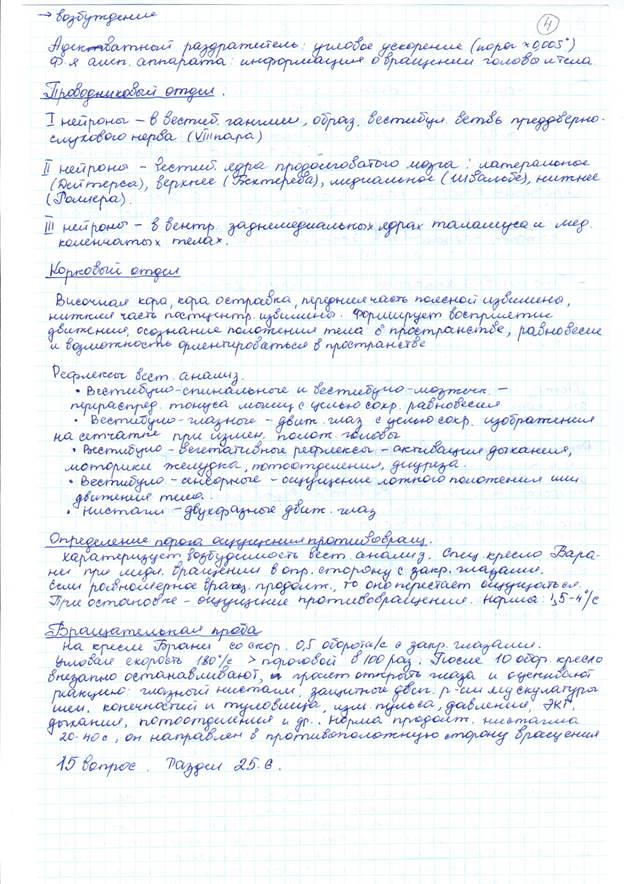 → возбуждение
4
Адекватный раздражитель: угловое ускорение (порог × 0,005°)
Ф-я амп. аппарата: информация о вращении головы и тела.
Проводниковый отдел.
I нейроны – в вестиб. ганглии, образ. вестибул. ветвь преддверно-
слухового нерва (VIII пара)
II нейроны – вестиб. ядра продолговатого мозга: латеральное
(Дейтерса), верхнее (Бехтерева), медиальное (Швальбе), нижнее
(Роллера).
III нейроны – в вентр. заднемедиальных ядрах таламуса и мед.
коленчатых телах.
Корковый отдел
Височная кора, кора островка, передняя часть поясной извилины,
нижняя часть постцентр. извилины. Формирует восприятие
движения, осознание положения тела в пространстве, равновесие
и возможность ориентироваться в пространстве
Рефлексы вест. анализ.
• Вестибуло-спинальные и вестибуло-мозжечк. –
перераспред. тонуса мышц с целью сохр. равновесия
• Вестибуло-глазные – движ. глаз с целью сохр. изображения
на сетчатке при измен. полож. головы
• Вестибуло-вегетативные рефлексы – активация дыхания,
моторики желудка, потоотделения, диуреза.
• Вестибуло-сенсорные – ощущение ложного положения или
движения тела.
• Нистагм – двухфазные движ. глаз
Определение порога ощущения противовращ.
Характеризует возбудимость вест. анализ. Спец. кресло Бара-
ни при медл. вращении в опр. сторону с закр. глазами.
Если равномерное вращ. продолж., то оно перестает ощущаться.
При остановке – ощущение противовращения. Норма: 1,5-4°/с
Вращательная проба
На кресле Барани со скор. 0,5 оборота/с с закр. глазами.
Угловая скорость 180°/с > пороговой в 100 раз. После 10 обор. кресло
внезапно останавливают, просят открыть глаза и оценивают
реакцию: глазный нистагм, защитные двиг. р-ии мускулатуры
шеи, конечностей и туловища, изм. пульса, давления, ЭКГ,
дыхания, потоотделения и др.. Норма продолж. нистагма
20-40 с, он направлен в противоположную сторону вращения
15 вопрос. Раздел 25.6.